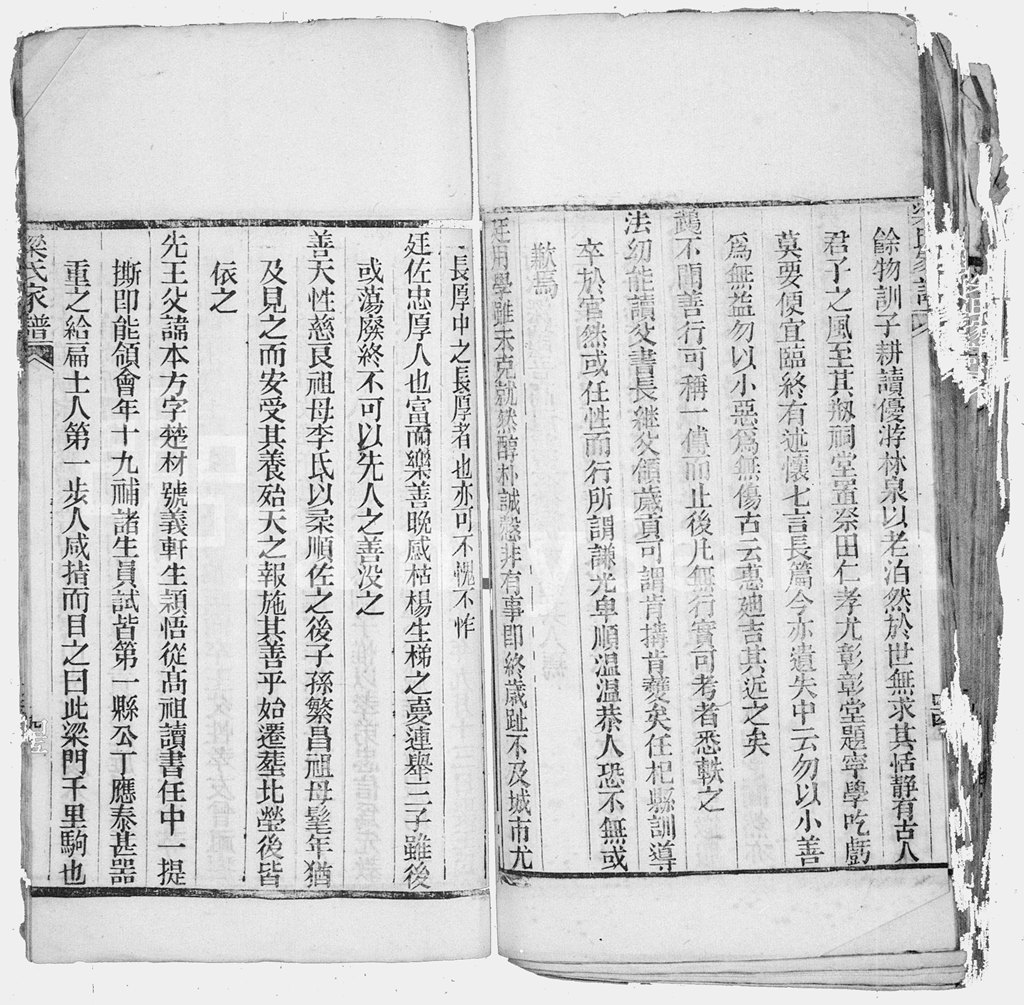 餘物訓子耕讀優游林泉以老泊然於世無求其恬靜有古人
君子之風至其剏祠堂置祭田仁孝尤彰彰堂題寧學吃虧
莫要便宜臨終有述懷七言長篇今亦遺失中云勿以小善
爲無益勿以小惡爲無傷古云惠廸吉其近之矣
鵾不聞善行可稱一傳而止後凡無行實可考者悉軼之
法幼能讀父書長繼父領歲貢可謂肯搆肯穫矣任杞縣訓導
卒於官然或任性而行所謂謙光卑順溫溫恭人恐不無或
歉焉
廷用學雖未克就然醇朴誠慤非有事即終歲趾不及城市尤
長厚中之長厚者也亦可不愧不怍
廷佐忠厚人也富而樂善晚感枯楊生梯之憂連舉三子雖後
或蕩廢終不可以先人之善没之
善天性慈良祖母李氏以柔順佐之後子孫繁昌祖母髦年猶
及見之而安受其養殆天之報施其善乎始遷塟北塋後皆
依之
先王父諱本方字楚材號義軒生穎悟從高祖讀書任中一提
撕即能領會年十九補諸生員試皆第一縣公丁應泰甚器
重之給扁士人第一步人咸指而目之曰此梁門千里駒也
梁氏家譜